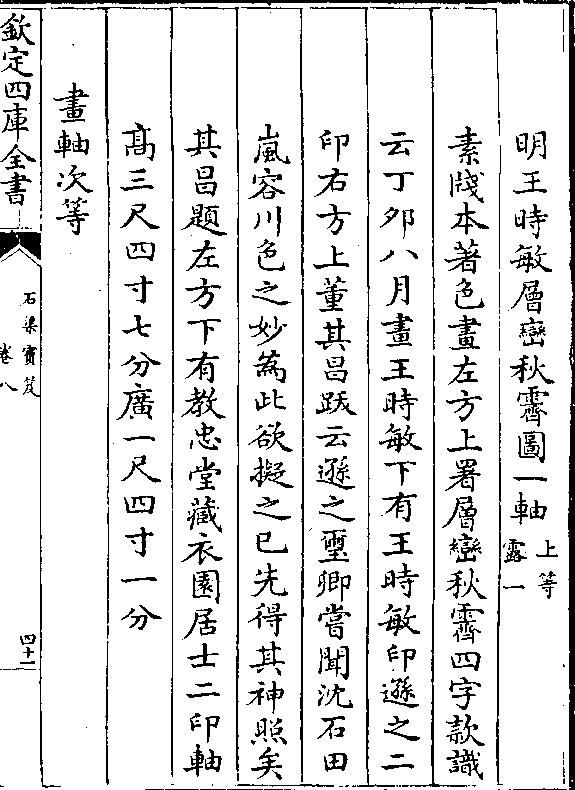 明王時敏層巒秋霽圖一軸 上等
露一
素牋本著色畫左方上署層巒秋霽四字款識
云丁夘八月畫王時敏下有王時敏印遜之二
印右方上董其昌跋云遜之璽卿嘗聞沈石田
嵐容川色之妙為此欲擬之已先得其神照矣
其昌題左方下有教忠堂藏衣園居士二印軸
髙三尺四寸七分廣一尺四寸一分
畫軸次等
欽定四庫全書
石渠寶笈
卷八
四十一